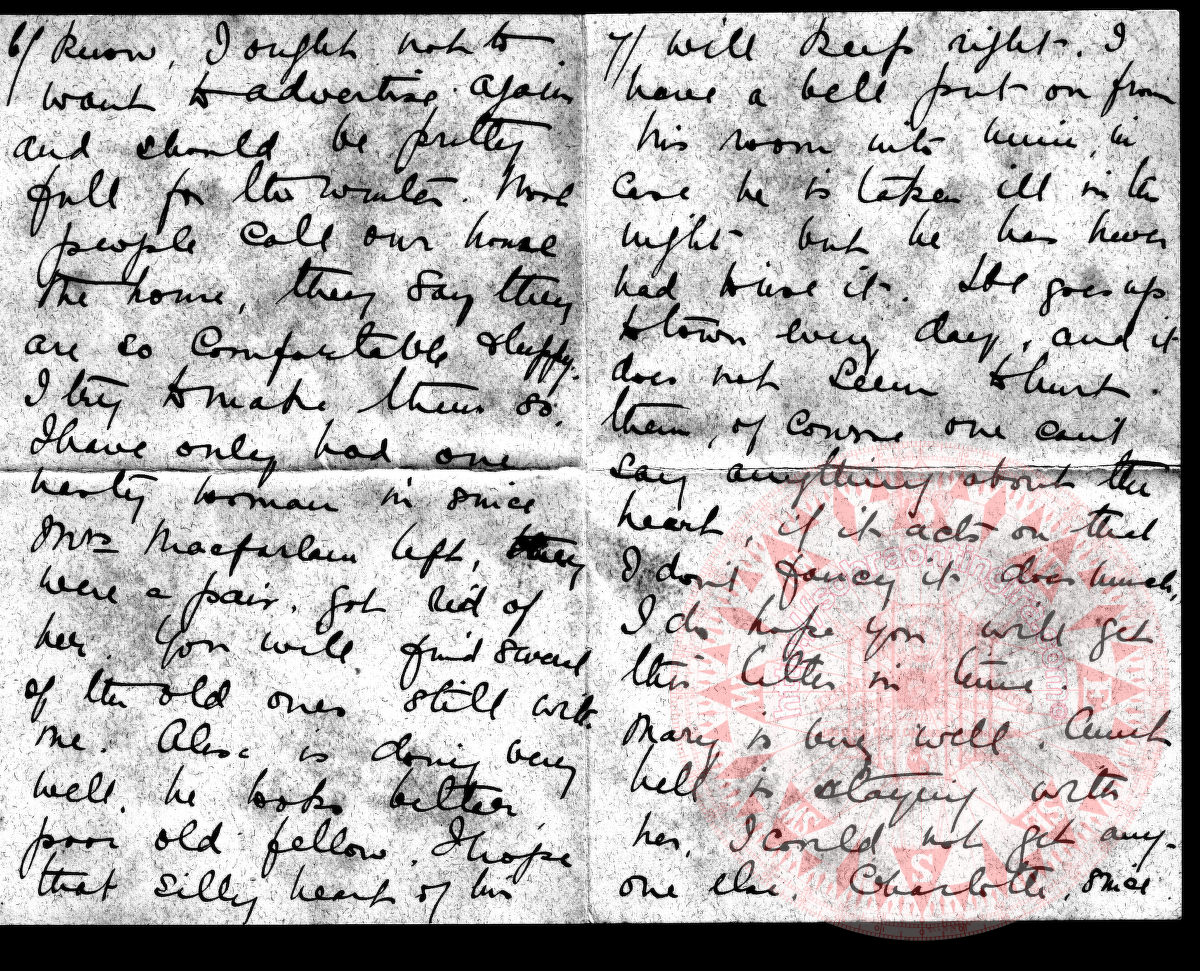 6/ know, I ought not to
want to advertise again
and should be pretty
full for the winter. Most
people call our house
the home, they say they
are so comfortable & happy.
I try to make them so.
I have only had one
nasty woman in since
Mrs Macfarlain left, they
were a pair. got rid of
her. You will find several
of the old ones still with
me. Alec is doing very
well. he looks better,
poor old fellow. I hope
that silly heart of his
7/ will keep right. I
have a bell put on from
his room into mine, in
case he is taken ill in the
night but he has never
had to use it. He goes up
to town every day, and it
does not seem to hurt
them, of course one can't
say anything about the
heart, if it acts on that
I don't fancy it does much,
I do hope you will get
this letter in time.
Mary is very well. Aunt
Nell is staying with
her, I could not get any-
one else. Charlotte, since